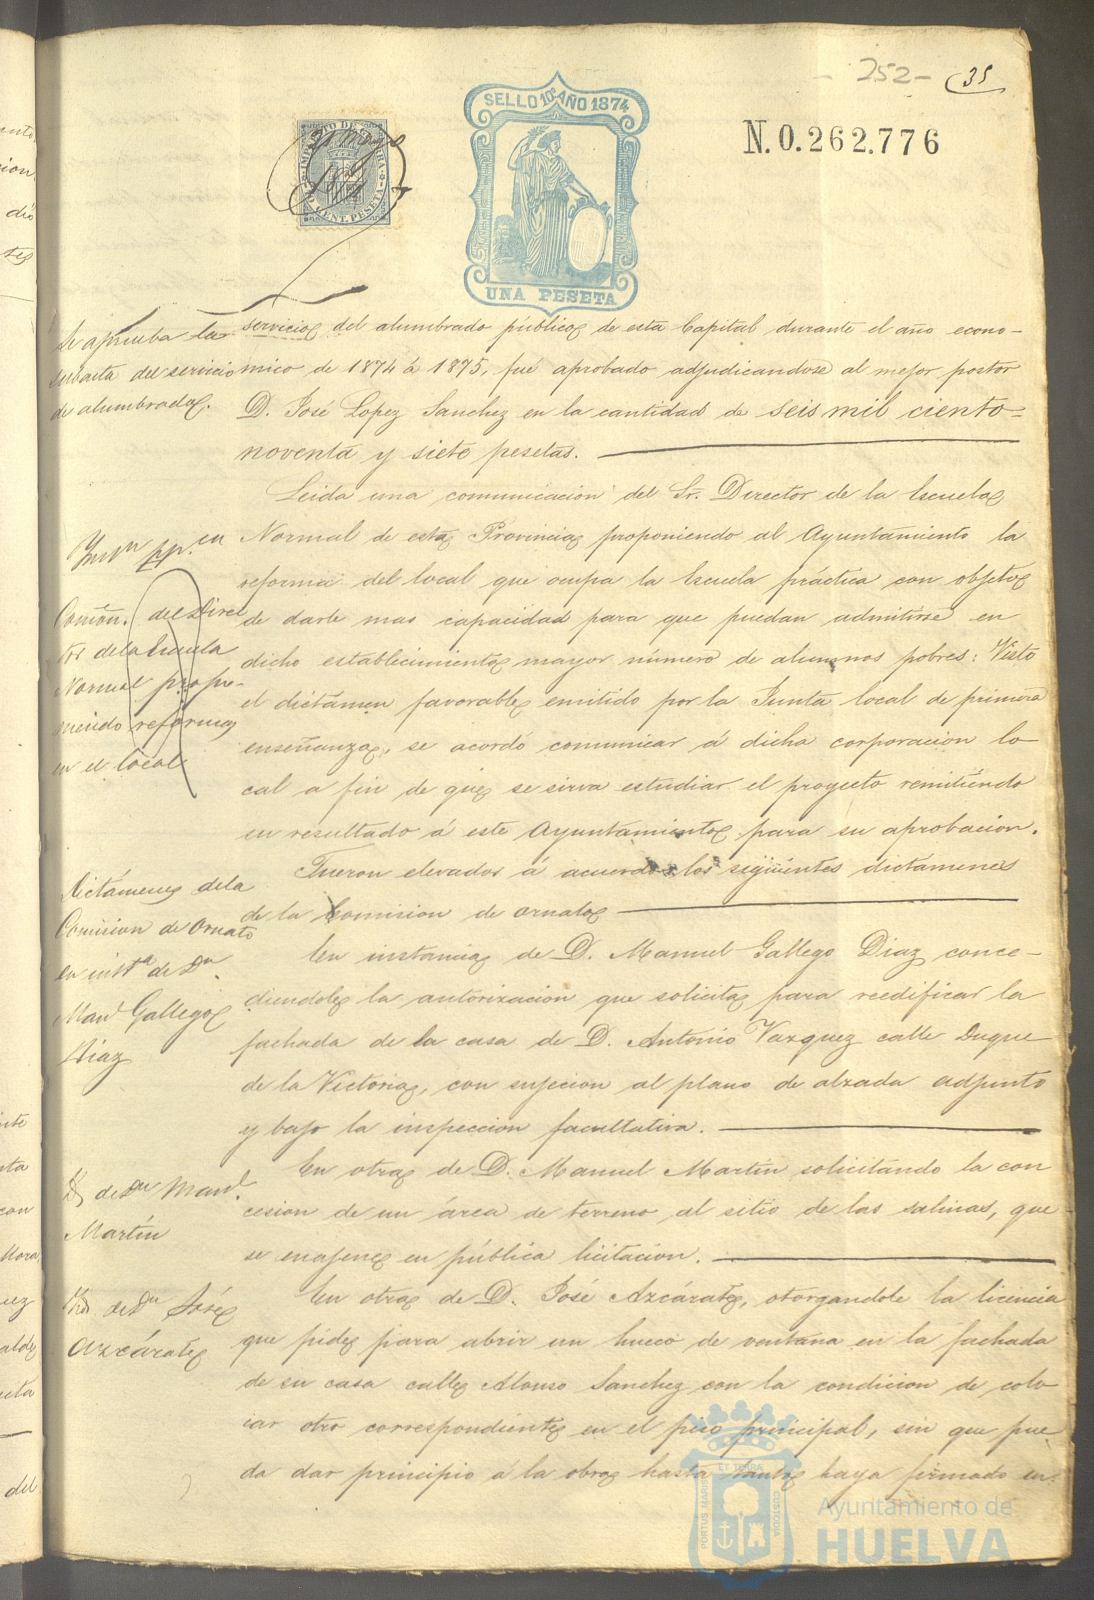 - 252 -
35
SELLO 10º AÑO 1874
N. 0.262.776
IMPUESTO DE GUERRA
CENT. PESETA
21 Mayo
UNA PESETA
Se aprueba la
subasta del servicio
de alumbrado.
servicio del alumbrado público de esta Capital durante el año econo-
mico de 1874 á 1875, fué aprobado adjudicandose al mejor postor
D. José Lopez Sanchez en la cantidad de seis mil ciento
noventa y siete pesetas.
Leida una comunicacion del Sr. Director de la Escuela
Normal de esta Provincia proponiendo al Ayuntamiento la
reforma del local que ocupa la Escuela práctica con objeto
de darle mas capacidad para que puedan admitirse en
dicho establecimiento mayor número de alumnos pobres: Visto
el dictámen favorable emitido por la Junta local de primera
enseñanza, se acordó comunicar á dicha corporacion lo
cal a fin de que se sirva estudiar el proyecto remitiendo
su resultado á este Ayuntamiento para su aprobacion.
Comon. del Direc
tor de la Escuela
Normal propo-
niendo reforma
en el local
Fueron elevados á acuerdos los siguientes dictámenes
de la Comision de ornato
Dictámenes de la
Comision de Ornato
en insta de Dn
Manl Gallego
Diaz
En instancia de D. Manuel Gallego Diaz conce-
diendole la autorizacion que solicita para reedificar la
fachada de la casa de D. Antonio Vazquez calle Duque
de la Victoria, con sujecion al plano de alzada adjunto
y bajo la inspeccion facultativa.
de Dn Manl
Martín
En otra de D. Manuel Martín solicitando la con
cesion de un área de terreno al sitio de las salinas, que
se enajene en pública licitacion.
de Dn José
Azcárate
En otra de D. José Azcárate, otorgandole la licencia
que pide para abrir un hueco de ventana en la fachada
de su casa calle Alonso Sanchez con la condicion de colo
car otro correspondiente en el piso principal, sin que pue
da dar principio á la obra hasta tanto haya firmado en
PORTUS MARIS
ET TERRA
CUSTODIA
Ayuntamiento de
HUELVA